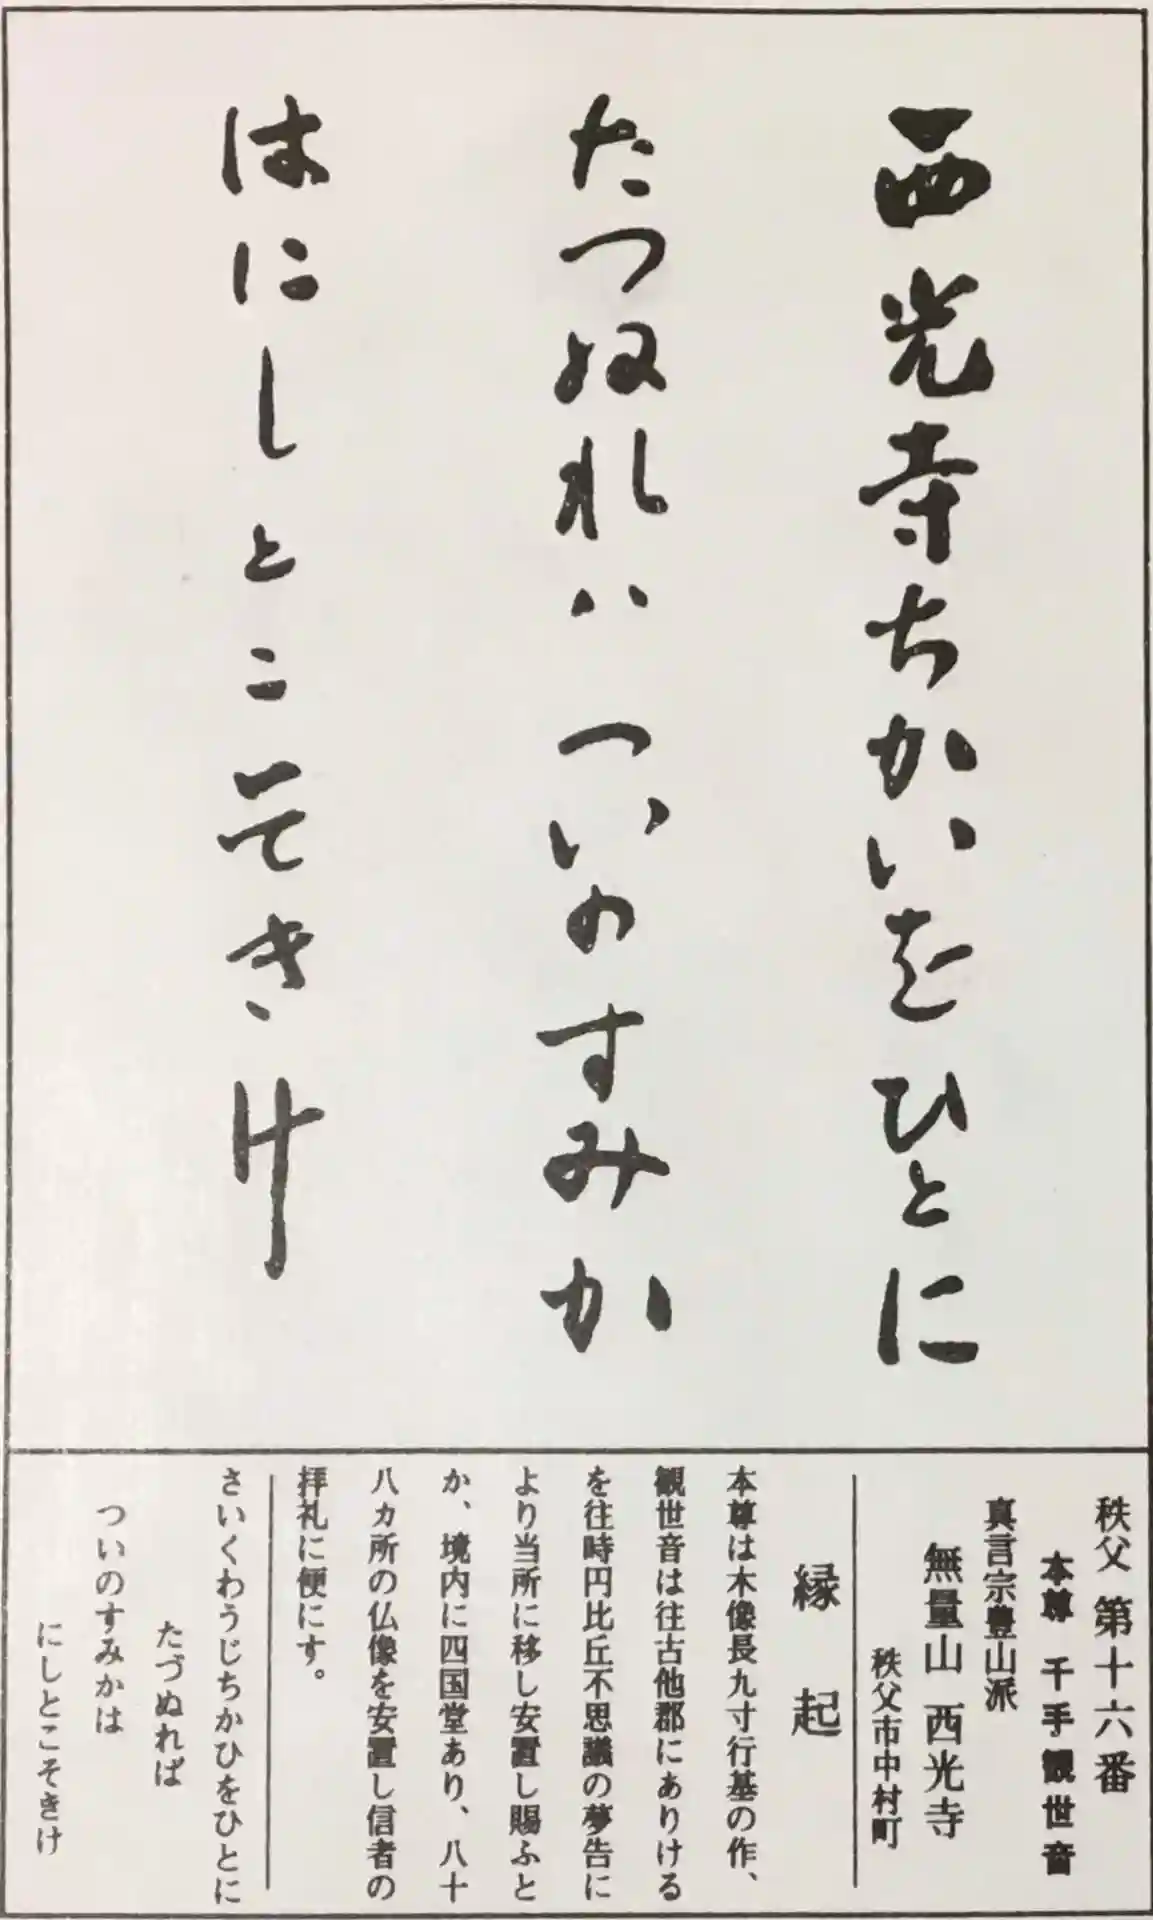 西光寺ちかいをひとに
たつぬれハついのすみか
はにしとこそきけ
秩父 第十六番
本尊 千手観世音
真言宗豊山派
無量山 西光寺
秩父市中村町
縁起
本尊は木像長九寸行基の作、
観世音は往古他郡にありける
を往時円比丘不思議の夢告に
より当所に移し安置し賜ふと
か、境内に四国堂あり、八十
八ヵ所の仏像を安置し信者の
拝礼に便にす。
さいくわうじちかひをひとに
たづぬれば
ついのすみかは
にしとこそきけ